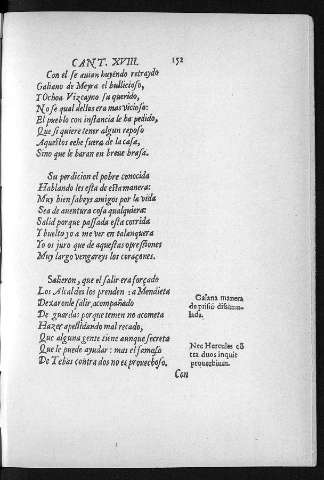 CANT. XVIII. 152
Con el se auian huyendo retraydo
Galiano de Meyra el bullicioso,
Y Ochoa Vizcayno su querido,
No se qual dellos era mas vicioso:
El pueblo con instancia le ha pedido,
Que si quiere tener algun reposo
Aquellos eche fuera de la casa,
Sino que le haran en breue brasa.
Su perdicion el pobre conocida
Hablando les esta de esta manera:
Muy bien sabeys amigos por la vida
Sea de auentura cosa qualquiera:
Salid porque passada esta corrida
Y buelto yo a me ver en talanquera
Yo os juro que de aquestas opresiones
Muy largo vengareys los coraçones.
Salieron, que el salir era forçado
Los Alcaldes los prenden: a Mendieta
Dexaronle salir, acompañado
De guardas porque temen no acometa
Hazer apellidando mal recado,
Que alguna gente tiene aunque secreta
Que le puede ayudar: mas el famoso
De Tebas contra dos no es prouechoso.
Galana manera
de prisiõ disimu-
lada.
Nec Hercules cõ
tra duos inquit
prouerbium.
Con